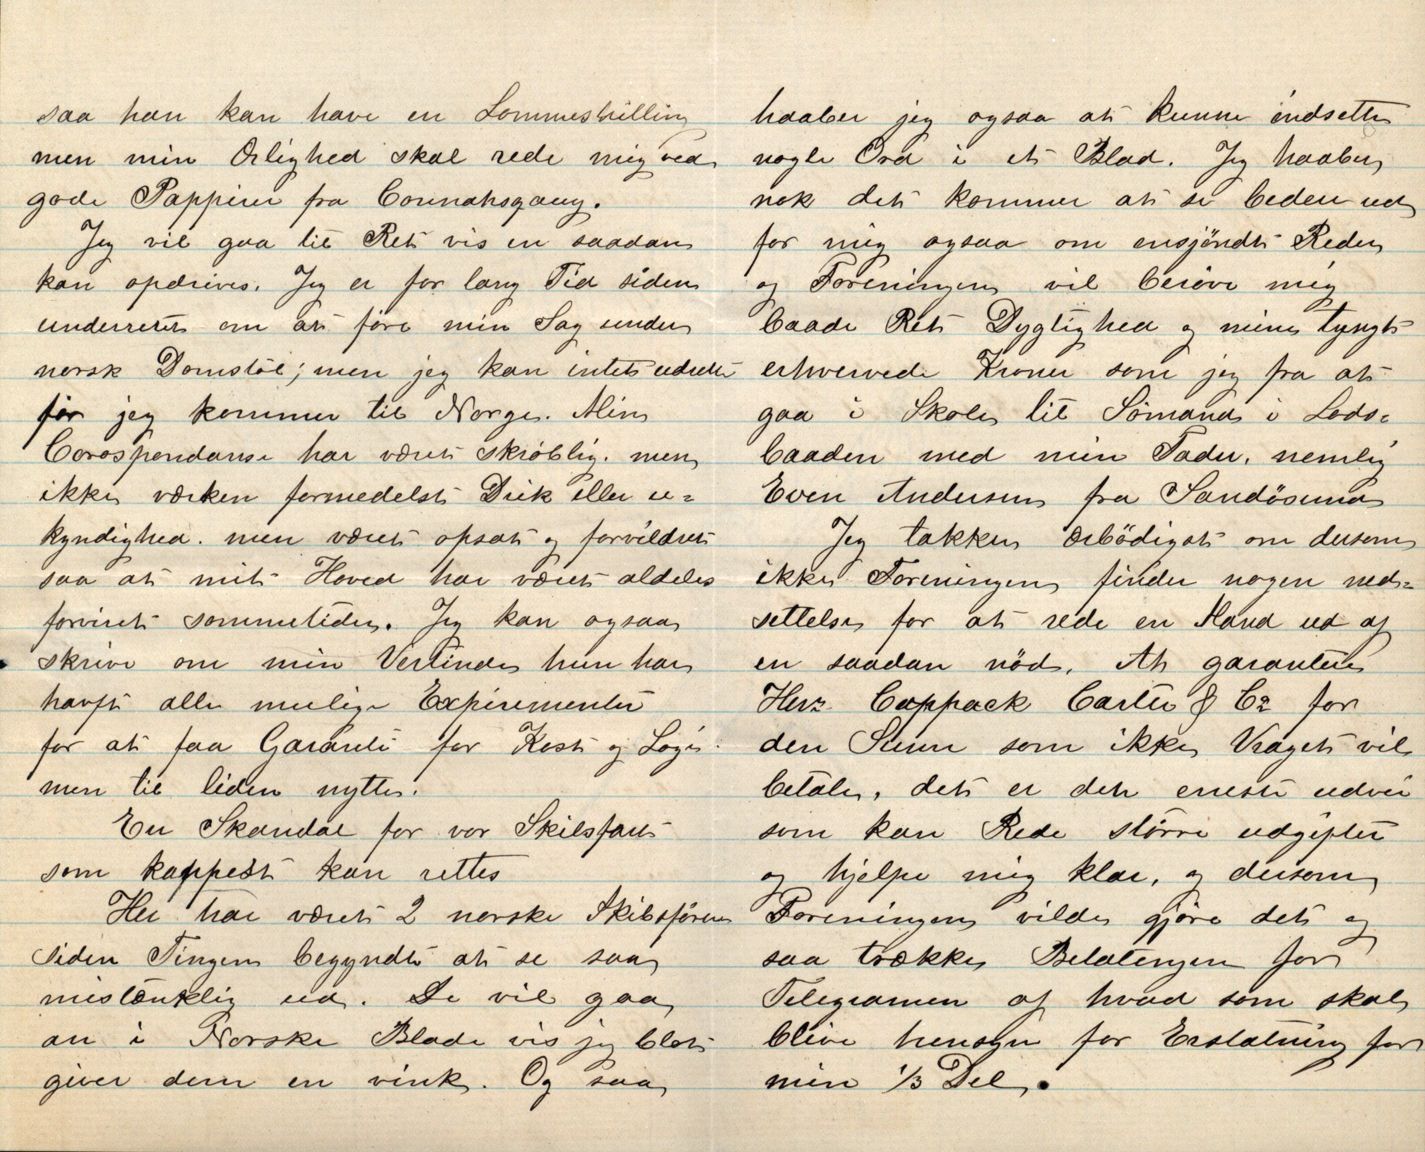 saa han kan have en Lommeskilling
men min Ærlighed skal rede mig ved
gode Pappirer fra
Jeg vil gaa til Ret vis en saadan
kan opdrives. Jeg er for lang Tid siden
underrettet om at före min Sag under
norsk Domstöl; men jeg kan intet udrette
før jeg kommer til Norge. Min
Corospondanse har været skröblig. men
ikke værken formedelst Drik eller u=
kyndighed. men været opsat og forvildret
saa at mit Hoved har været aldeles
forviret sommetider. Jeg kan ogsaa
skrive om min Vertinde hun har
havft alle mulige Expirementer
for at faa Garanti for Kost og Logi.
men til liden nytte.
En Skandal for vor Skibsfart
som kappest kan rettes
Her har været 2 norske Skibsförere
siden Tingen begyndte at se saa
mistænklig ud. De vil gaa
an i Norske Blade vis jeg blot
giver dem en vink. Og saa
haaber jeg ogsaa at kunne indsette
nogle Ord i et Blad. Jeg haaber
nok det kommer at se beder ud
for mig ogsaa om ensjöndt Reder
og Foreningen vil beröve mig
baade Ret Dygtighed og mine tungt
erhvervede Kroner som jeg fra at
gaa i Skole til Sömand i Lods=
baaden med min Fader. nemlig
Even Andersen fra Sandösund
Jeg takker ærbödigst om dersom
ikke Foreningen finder nogen ned=
settelse for at rede en Mand ud af
en saadan nöd. At garantere
Herr Cappack Carter & Co for
den Sum som ikke Vraget vil
betale, det er den eneste udvei
som kan Rede större udgifter
og hjelpe mig klar, og dersom
Foreningen vilde gjöre det og
saa trække Belatingen for
Telegramen af hvad som skal
blive hensyn for Erstatning for
min 1/3 Del.